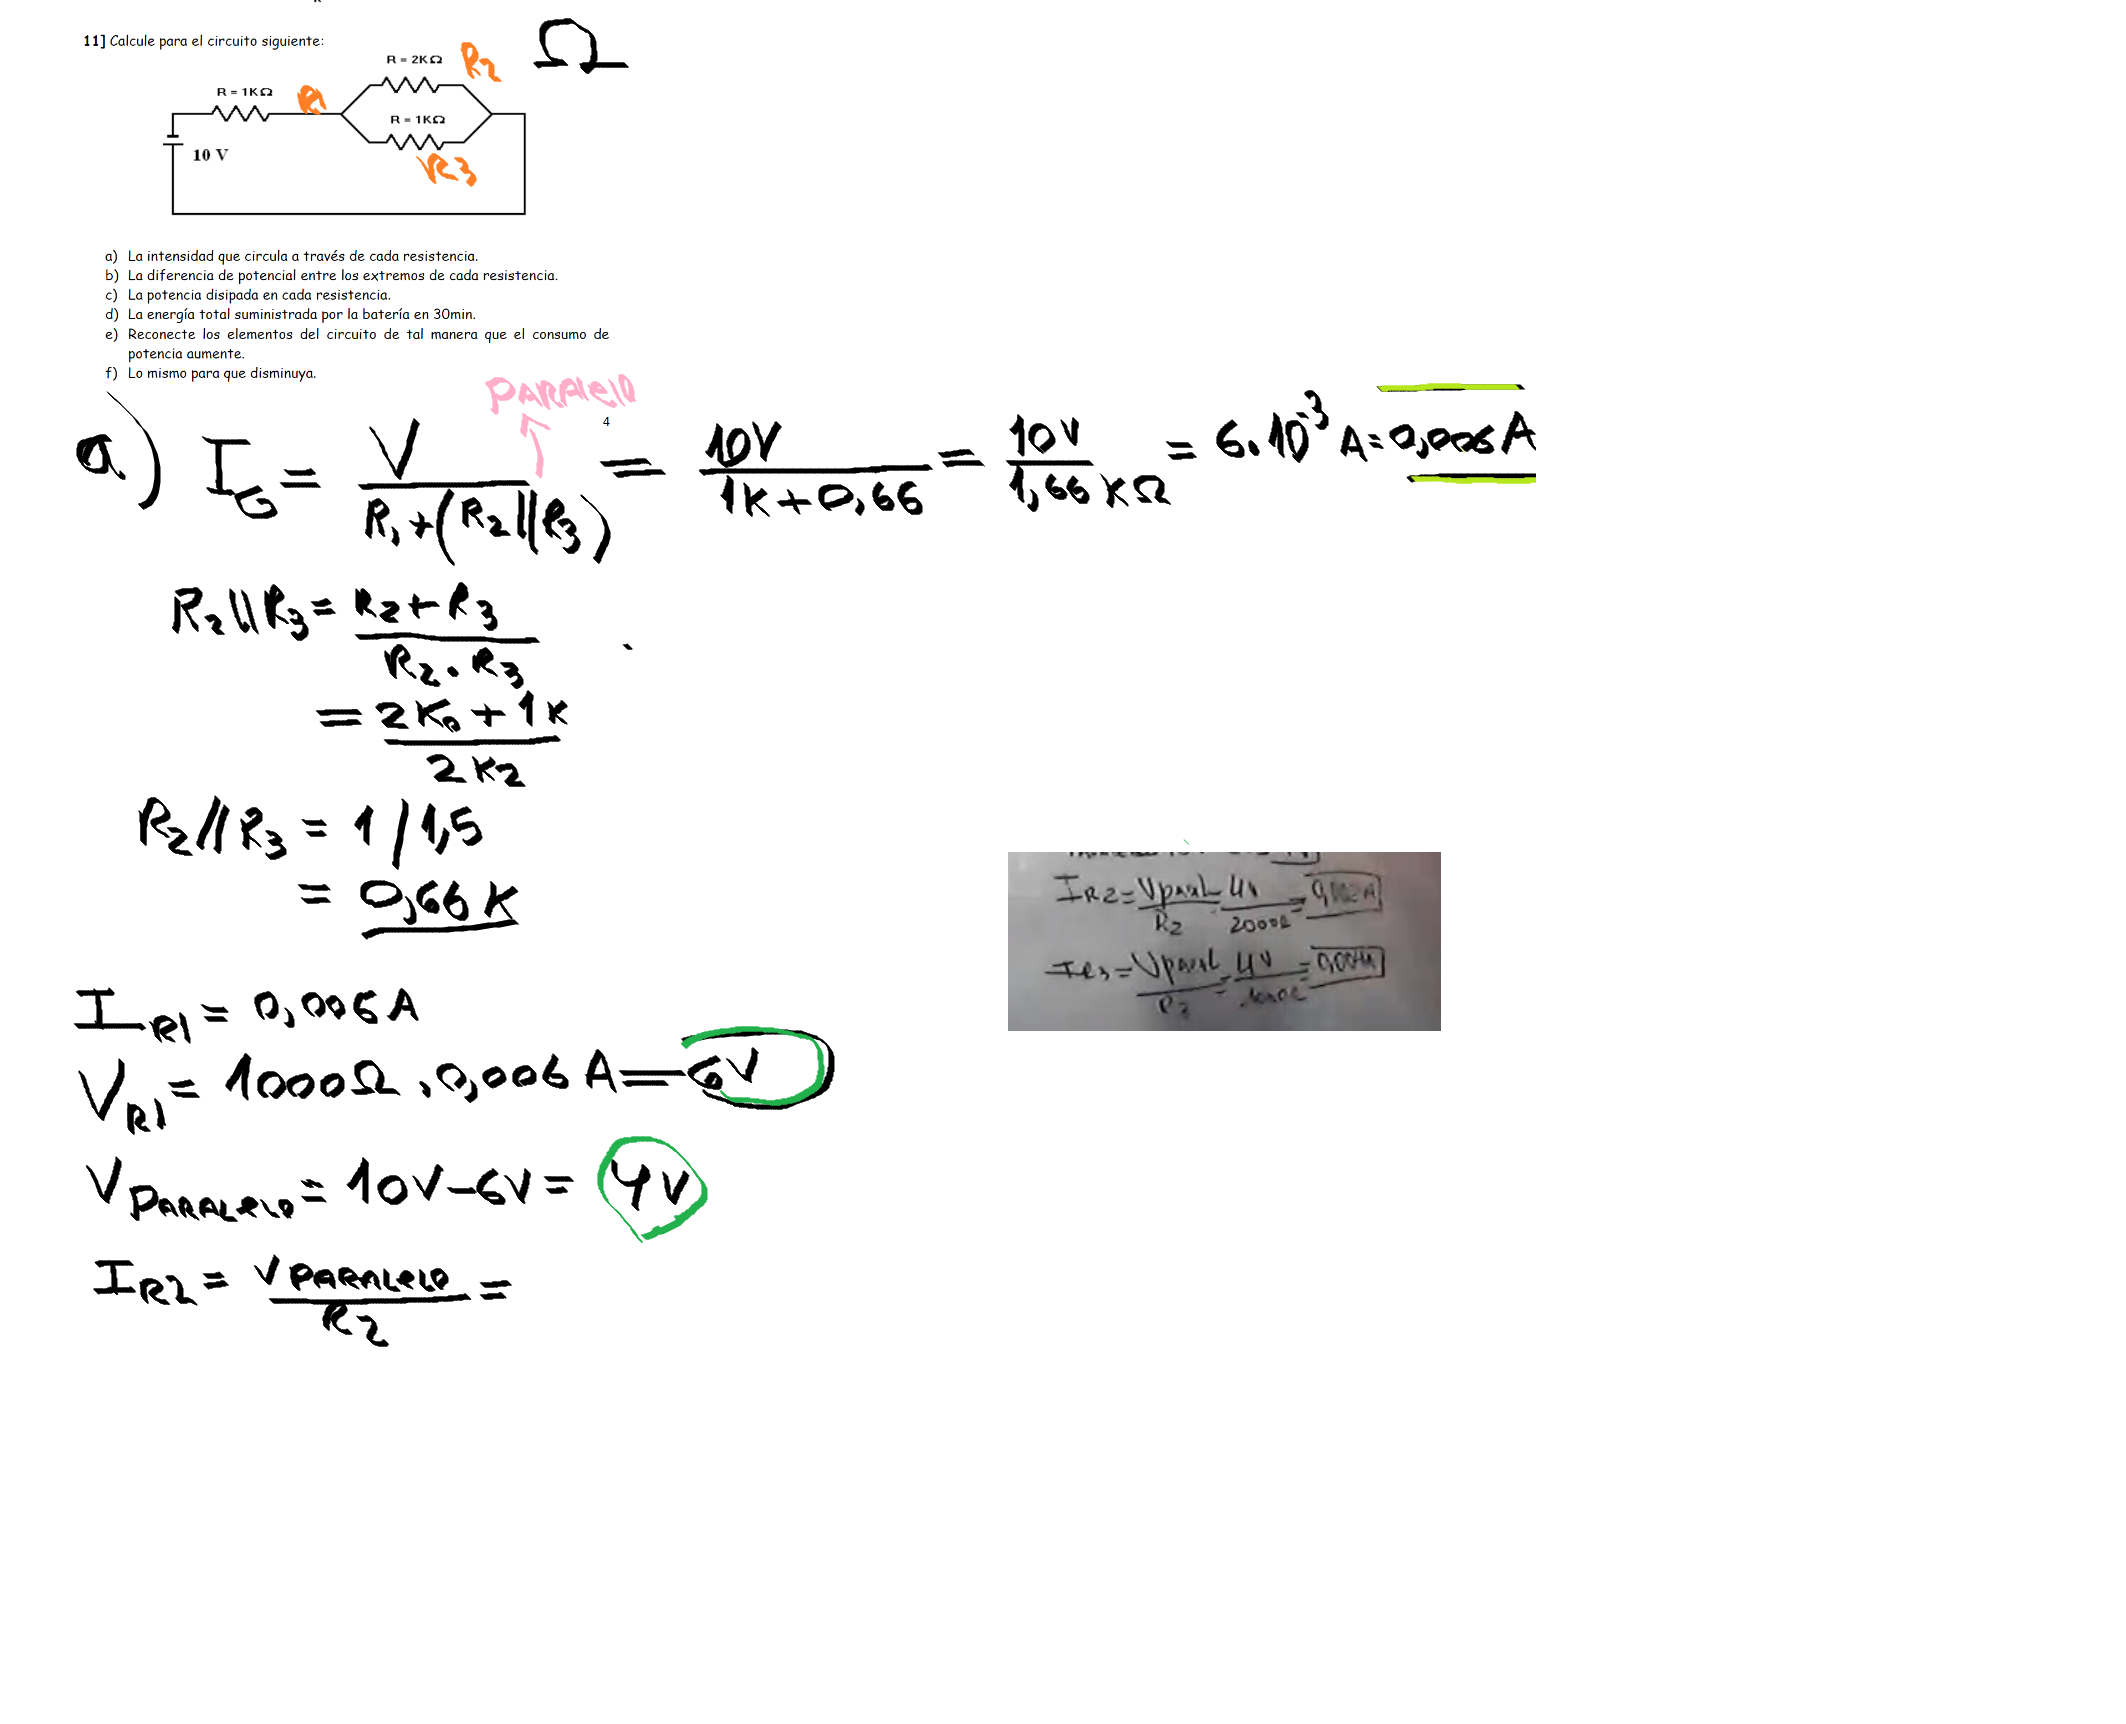 11] Calcule para el circuito siguiente:
Ω
R = 2KΩ
R2
R = 1KΩ
R = 1KΩ
R3
10 V
a) La intensidad que circula a través de cada resistencia.
b) La diferencia de potencial entre los extremos de cada resistencia.
c) La potencia disipada en cada resistencia.
d) La energía total suministrada por la batería en 30min.
e) Reconecte los elementos del circuito de tal manera que el consumo de
potencia aumente.
f) Lo mismo para que disminuya.
PARALELO
4
a) IG = V / R1+(R2||R3) = 10V / 1K+0,66 = 10V / 1,66 KΩ = 6.10^-3 A = 0,006 A
R2\\R3 = R2+R3 / R2.R3
= 2K + 1K / 2K2
R2//R3 = 1/1,5
= 0,66 K
IR2 = VPARAL / R2 = 4V / 2000Ω = 0,002A
IR3 = VPARAL / R3 = 4V = 0,004A
IR1 = 0,006 A
VR1 = 1000Ω . 0,006 A = 6V
VPARALELO = 10V-6V = 4V
IR2 = VPARALELO / R2 =